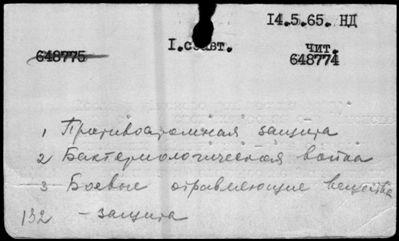 14.5.65. НД
I. с авт. чит.
648775 648774
1 Противоатомная защита
2 Бактериологическая война
3 Боевые отравляющие вещества
132 - защита